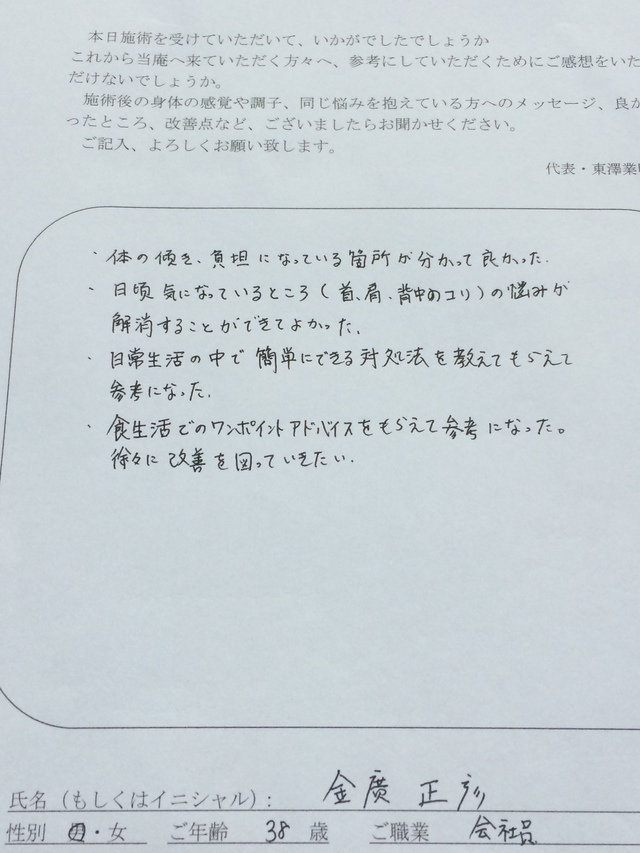 本日施術を受けていただいて、いかがでしたでしょうか
これから当庵へ来ていただく方々へ、参考にしていただくためにご感想をいた
だけないでしょうか。
施術後の身体の感覚や調子、同じ悩みを抱えている方へのメッセージ、良か
ったところ、改善点など、ございましたらお聞かせください。
ご記入、よろしくお願い致します。
代表・東澤業
・体の傾き、負担になっている箇所が分かって良かった.
・日頃気になっているところ(首、肩、背中のコリ)の悩みが
解消することができてよかった.
・日常生活の中で簡単にできる対処法を教えてもらえて
参考になった.
・食生活でのワンポイントアドバイスをもらえて参考になった。
徐々に改善を図っていきたい.
氏名(もしくはイニシャル):金廣 正彦
性別 男・女 ご年齢 38 歳 ご職業 会社員